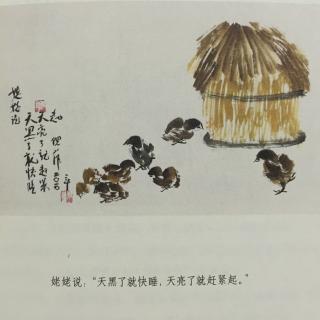 姥姥说
天黑了就快睡
天亮了就赶紧
起
姥姥说:“天黑了就快睡,天亮了就赶紧起。”